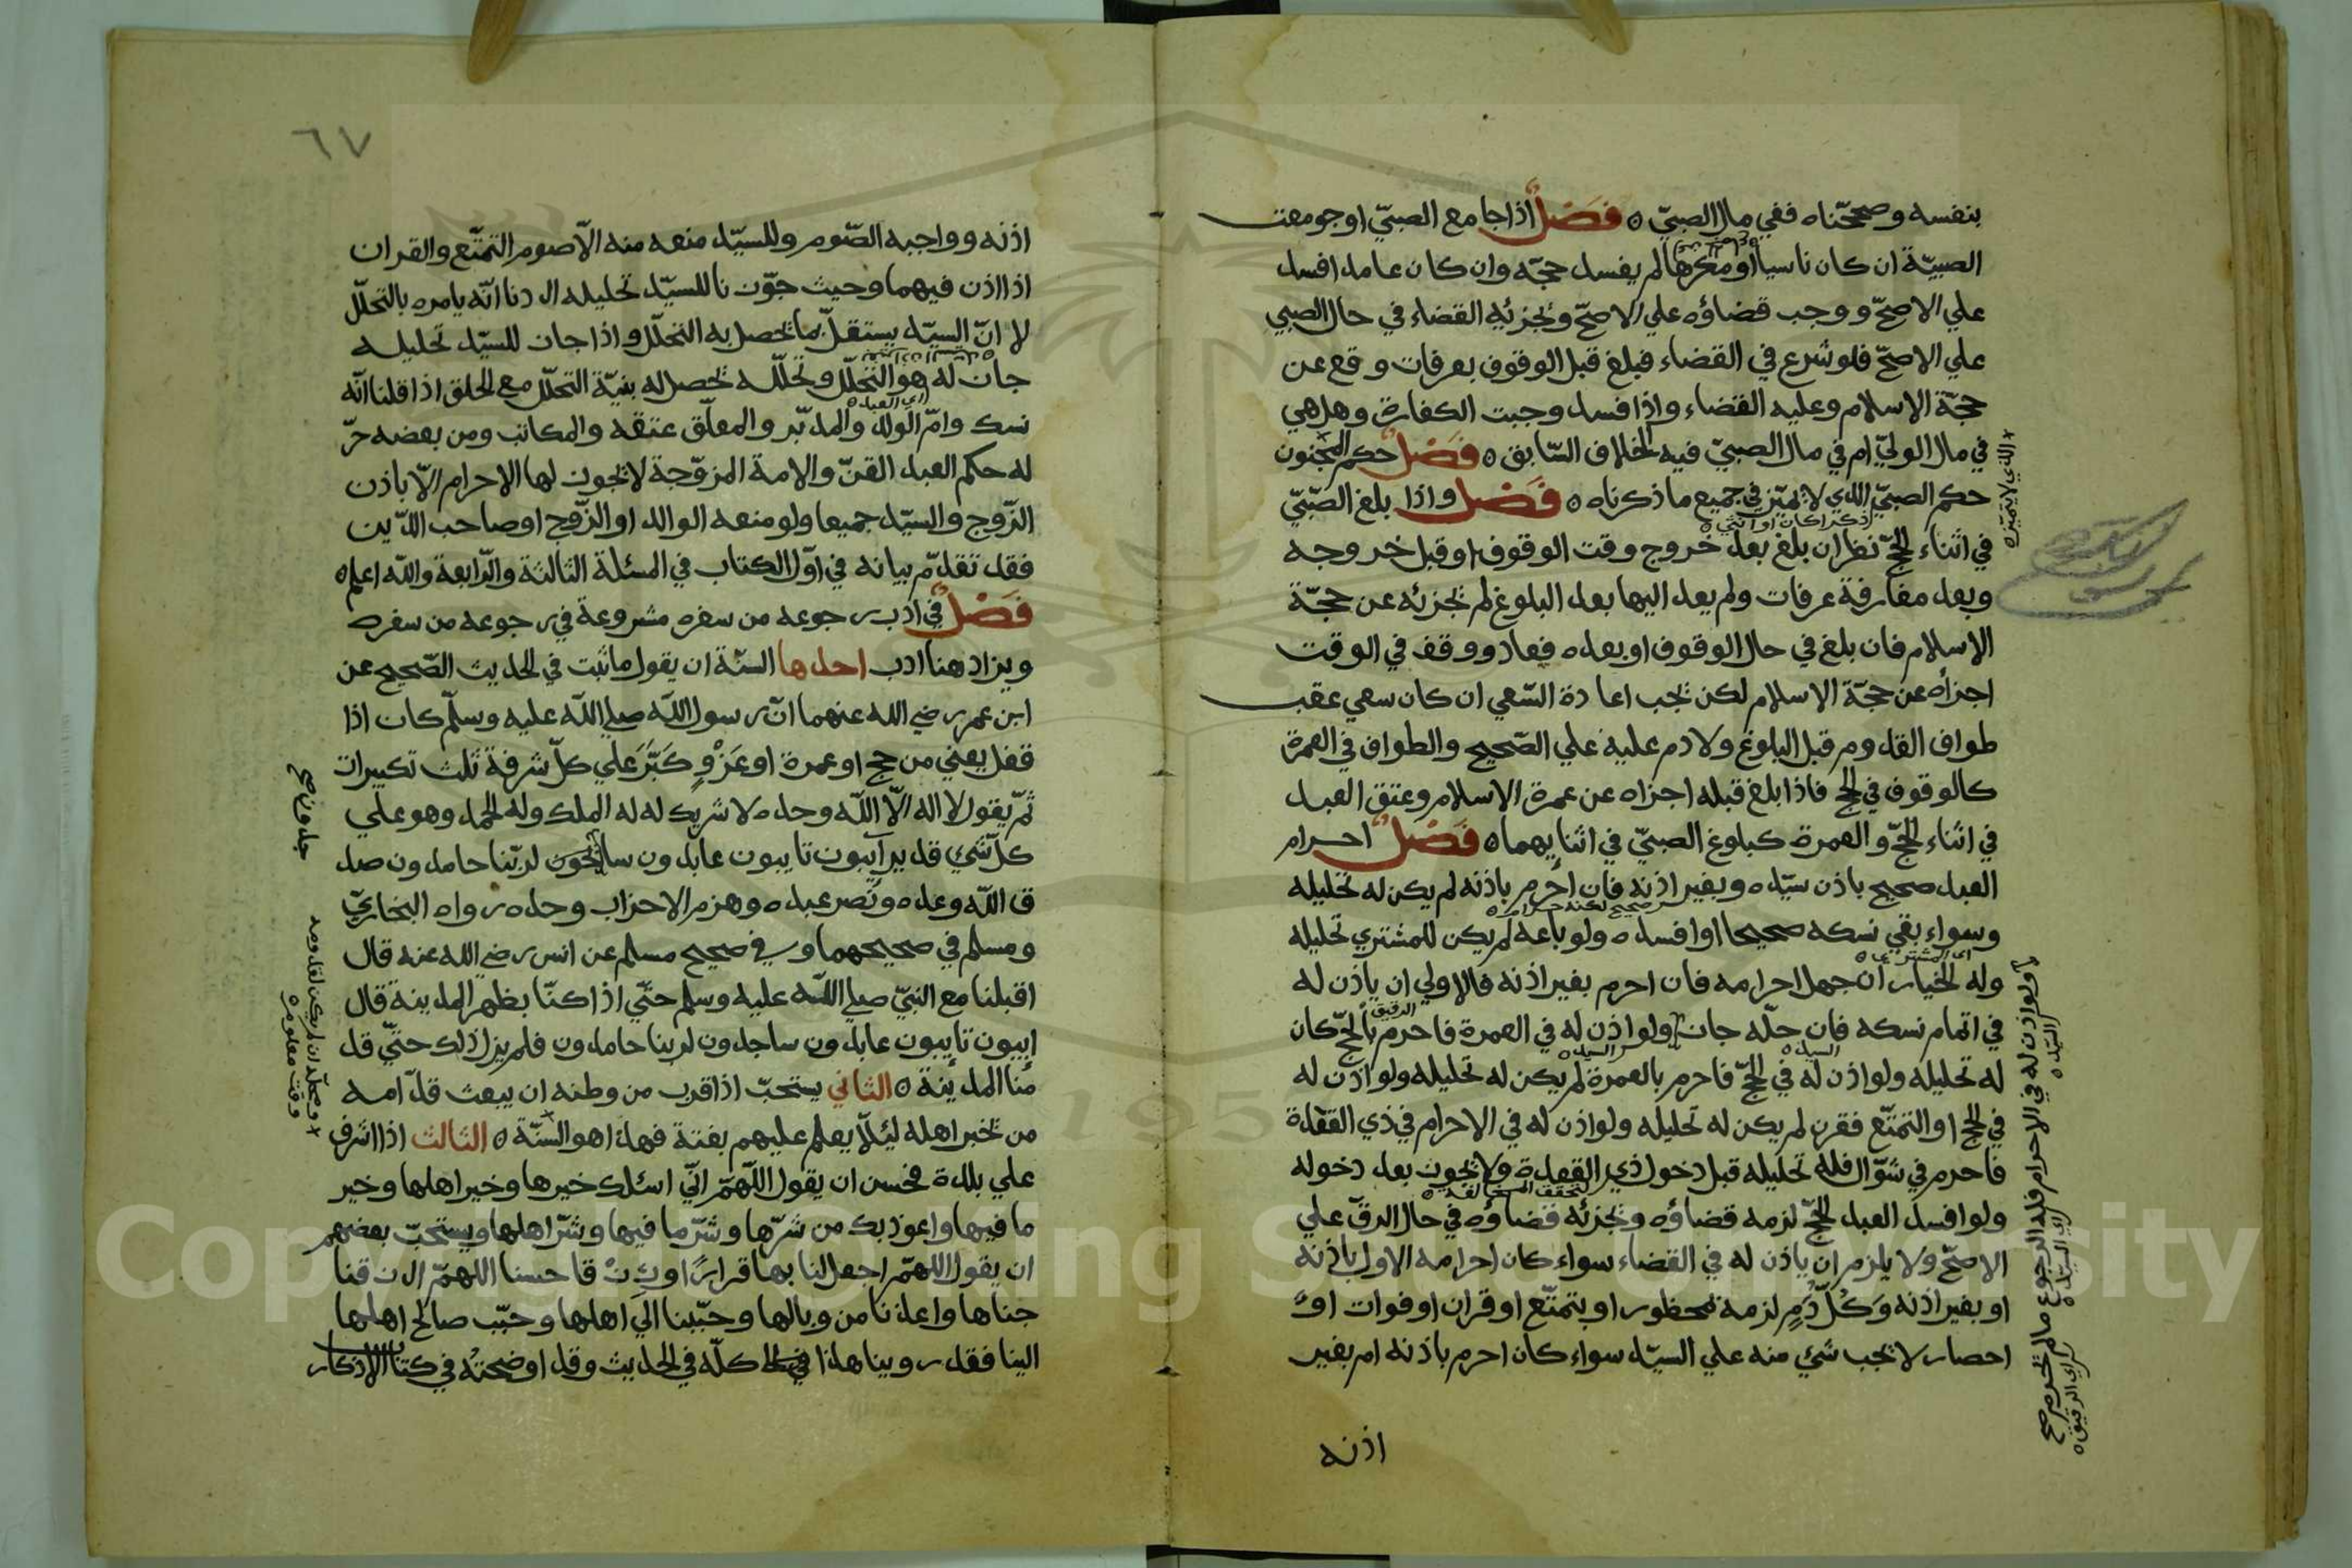 بنفسه وصححّناه ففي مال الصبيّ ه فصل اذا جامع الصبيّ او جومعت
الصبيّة ان كان ناسيا او مكرها لم يفسد حجّه وان كان عامدا فسد
علي الاصحّ ووجب قضاؤه علي الاصحّ ويجزئه القضاء في حال الصبي
علي الاصحّ فلو شرع في القضاء فبلغ قبل الوقوف بعرفات وقع عن
حجّة الاسلام وعليه القضاء واذا فسد وجبت الكفارة وهل هي
في مال الوليّ ام في مال الصبيّ فيه الخلاف السّابق ه فصل حكم المجنون
حكم الصبيّ الذي لا يميّز في جميع ما ذكرناه ه فصل واذا بلغ الصّبيّ
اذكرا كان او انثي ه
في اثناء الحجّ نظر ان بلغ بعد خروج وقت الوقوف او قبل خروجه
وبعد مفارقة عرفات ولم يعد اليها بعد البلوغ لم يجزئه عن حجّة
الاسلام فان بلغ في حال الوقوف او بعده فعاد ووقف في الوقت
اجزأه عن حجّة الاسلام لكن يجب اعادة السّعي ان كان سعي عقب
طواف القدوم قبل البلوغ ولا دم عليه علي الصّحيح والطواف في العمرة
كالوقوف في الحج فاذا بلغ قبله اجزاه عن عمرة الاسلام وعتق العبد
في اثناء الحجّ والعمرة كبلوغ الصبيّ في اثنايهما ه فصل احرام
العبد صحيح باذن سيّده وبغير اذنه فان احرم باذنه لم يكن له تحليله
وسواء بقي نسكه صحيحا او افسده ولو باعه لم يكن للمشتري تحليله
اي المشتري ه
وله الخيار ان جهل احرامه فان احرم بغير اذنه فالاولي ان ياذن له
في اتمام نسكه فان حلّه جاز ولو اذن له في العمرة فاحرم بالحجّ كان
له تحليله ولو اذن له في الحجّ فاحرم بالعمرة لم يكن له تحليله ولو اذن له
في الحج او التمتّع فقرن لم يكن له تحليله ولو اذن له في الاحرام في ذي القعدة
فاحرم في شوّال فله تحليله قبل دخول ذي القعدة ولا يجوز بعد دخوله
ولو افسد العبد الحجّ لزمه قضاؤه ويجزئه قضاؤه في حال الرقّ علي
الاصحّ ولا يلزم ان ياذن له في القضاء سواء كان احرامه الاول باذنه
او بغير اذنه وكلّ دم لزمه لمحظور او بتمتّع او قران او فوات او
احصار لا يجب شئ منه علي السيّد سواء كان احرم باذنه ام بغير
اذنه
الذي لا يتميّز ه
ولو اذن له في الاحرام فله الرجوع مالم يحرم صح
اي السيّد ه
اي الرقيق ه
٦٧
اذنه وواجبه الصّوم وللسيّد منعه منه الّا صوم التمتّع والقران
اذا اذن فيهما وحيث جوّزنا للسيّد تحليله اردنا انّه يامره بالتحلّل
لا انّ السيّد يستقلّ بما يحصل به التحلّل واذا جاز للسيّد تحليله
جاز له هو التحلّل وتحلّله يحصل له بنيّة التحلّل مع الحلق اذا قلنا انّه
اي العبد ه
نسك وامّ الولد والمدبّر والمعلّق عتقه والمكاتب ومن بعضه حرّ
له حكم العبد القنّ والامة المزوّجة لا يجوز لها الاحرام الّا باذن
الزّوج والسيّد جميعا ولو منعه الوالد او الزّوج او صاحب الدّين
فقد تقدّم بيانه في اوّل الكتاب في المسئلة الثالثة والرّابعة والله اعلم ه
فصل في ادب رجوعه من سفره مشروعة في رجوعه من سفره
ويزاد هنا ادب احدها السنّة ان يقول ما ثبت في الحديث الصّحيح عن
ابن عمر رضي الله عنهما انّ رسول الله صلي الله عليه وسلّم كان اذا
قفل يعني من حج او عمرة او غزو كبّر علي كلّ شرفة ثلث تكبيرات
ثمّ يقول لا اله الّا الله وحده لا شريك له له الملك وله الحمد وهو علي
كلّ شئ قدير آيبون تايبون عابدون سائحون لربّنا حامدون صد
ق الله وعده ونصر عبده وهزم الاحزاب وحده رواه البخاريّ
ومسلم في صحيحهما وفي صحيح مسلم عن انس رضي الله عنه قال
اقبلنا مع النبيّ صلي الله عليه وسلم حتّي اذا كنّا بظهر المدينة قال
ايبون تايبون عابدون ساجدون لربنا حامدون فلم يزل ذلك حتّي قد
منا المدينة ه الثاني يستحبّ اذا قرب من وطنه ان يبعث قدّامه
من يخبر اهله ليئلّا يعلم عليهم بغتة فهذا هو السنّة ه الثالث اذا اشرف
علي بلدة فحسن ان يقول اللّهمّ انّي اسئلك خيرها وخير اهلها وخير
ما فيها واعوذ بك من شرّها وشرّ ما فيها وشرّ اهلها ويستحبّ بعضهم
ان يقول اللهمّ اجعل لنا بها قرارا ورزقا حسنا اللهمّ ارزقنا
جناها واعذنا من وبالها وحبّبنا الي اهلها وحبّب صالح اهلها
الينا فقد روينا هذا كلّه في الحديث وقد اوضحته في كتاب الاذكار
جدون صح
Copyright © King Saud University
195